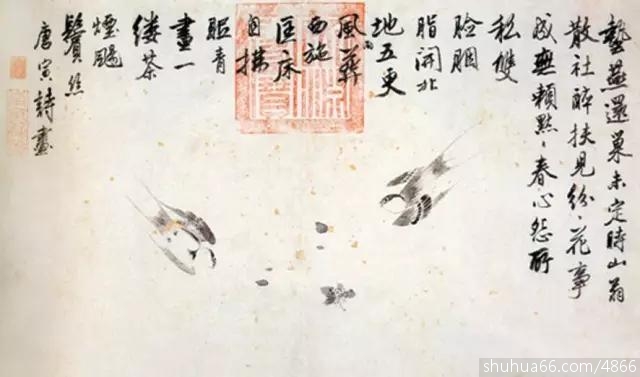 蟄燕還巢未定時山翁
散社醉扶兒紛〻花事
成無賴默〻春心怨所
私雙
臉胭
脂開北
地五更
風雨葬
西施
匡床
自拂
眠青
晝一
縷茶
煙颺
鬢絲
唐寅詩畫
shuhua66.com/4866